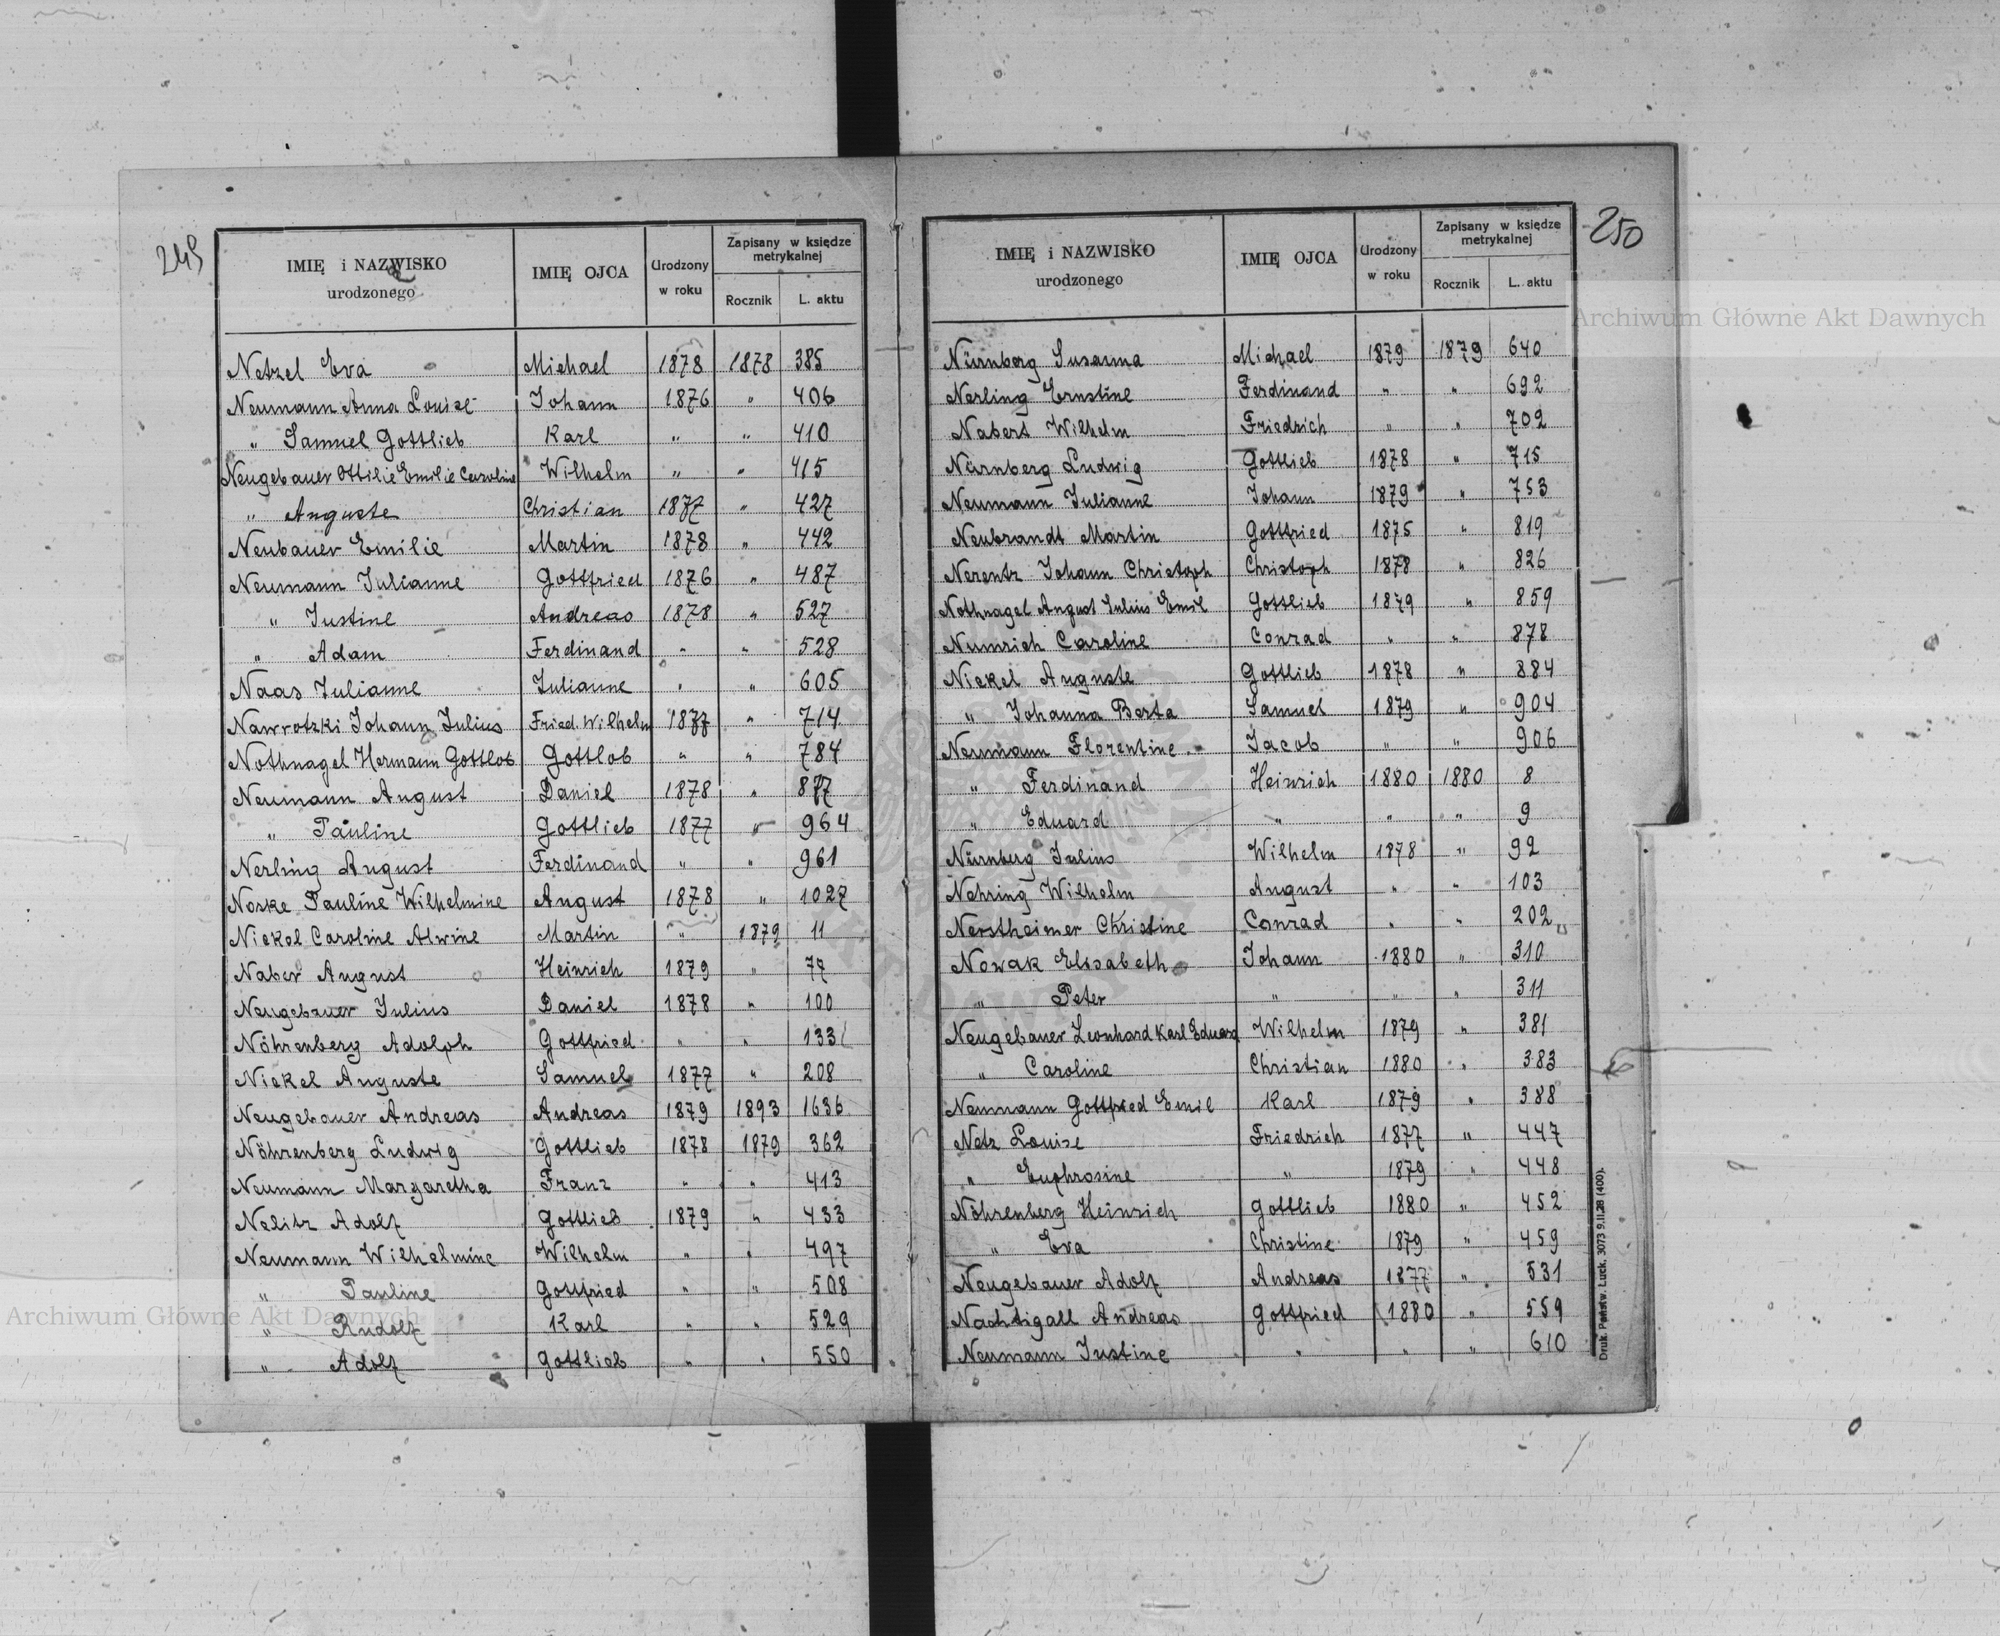 249
IMIĘ i NAZWISKO urodzonego IMIĘ OJCA Urodzony w roku Zapisany w księdze metrykalnej Rocznik L. aktu
Netzel Eva Michael 1878 1878 385
Neumann Anna Louise Johann 1876 " 406
" Samuel Gottlieb Karl " " 410
Neugebauer Ottilie Emilie Caroline Wilhelm " " 415
" Auguste Christian 1877 " 427
Neubauer Emilie Martin 1878 " 442
Neumann Julianne Gottfried 1876 " 487
" Justine Andreas 1878 " 527
" Adam Ferdinand " " 528
Naas Julianne Julianne " " 605
Nawrotzki Johann Julius Fried. Wilhelm 1877 " 714
Nothnagel Hermann Gottlob Gottlob " " 784
Neumann August Daniel 1878 " 877
" Pauline Gottlieb 1877 " 964
Nerling August Ferdinand " " 961
Noske Pauline Wilhelmine August 1878 " 1027
Nickel Caroline Alwine Martin " 1879 11
Naber August Heinrich 1879 " 77
Neugebauer Julius Daniel 1878 " 100
Nöhrenberg Adolph Gottfried " " 133
Nickel Auguste Samuel 1877 " 208
Neugebauer Andreas Andreas 1879 1893 1636
Nöhrenberg Ludwig Gottlieb 1878 1879 362
Neumann Margaretha Franz " " 413
Nelitz Adolf Gottlieb 1879 " 433
Neumann Wilhelmine Wilhelm " " 497
" Pauline Gottfried " " 508
" Rudolf Karl " " 529
" Adolf Gottlieb " " 550
250
IMIĘ i NAZWISKO urodzonego IMIĘ OJCA Urodzony w roku Zapisany w księdze metrykalnej Rocznik L. aktu
Nürnberg Susanna Michael 1879 1879 640
Nerling Ernstine Ferdinand " " 692
Nabert Wilhelm Friedrich " " 702
Nürnberg Ludwig Gottlieb 1878 " 715
Neumann Julianne Johann 1879 " 753
Neubrandt Martin Gottfried 1875 " 819
Nerentz Johann Christoph Christoph 1878 " 826
Nothnagel August Julius Emil Gottlieb 1879 " 859
Numrich Caroline Conrad " " 878
Nickel Auguste Gottlieb 1878 " 884
" Johanna Berta Samuel 1879 " 904
Neumann Florentine Jacob " " 906
" Ferdinand Heinrich 1880 1880 8
" Eduard " " " 9
Nürnberg Julius Wilhelm 1878 " 92
Nehring Wilhelm August " " 103
Nerstheimer Christine Conrad " " 202
Nowak Elisabeth Johann 1880 " 310
" Peter " " " 311
Neugebauer Leonhard Karl Eduard Wilhelm 1879 " 381
" Caroline Christian 1880 " 383
Neumann Gottfried Emil Karl 1879 " 388
Netz Louise Friedrich 1877 " 447
" Euphrosine " 1879 " 448
Nöhrenberg Heinrich Gottlieb 1880 " 452
" Eva Christine 1879 " 459
Neugebauer Adolf Andreas 1877 " 531
Nachtigall Andreas Gottfried 1880 " 559
Neumann Justine " " " 610
Druk. Państw. Łuck. 3073 9.II.28 (400).
Archiwum Główne Akt Dawnych
Archiwum Główne Akt Dawnych